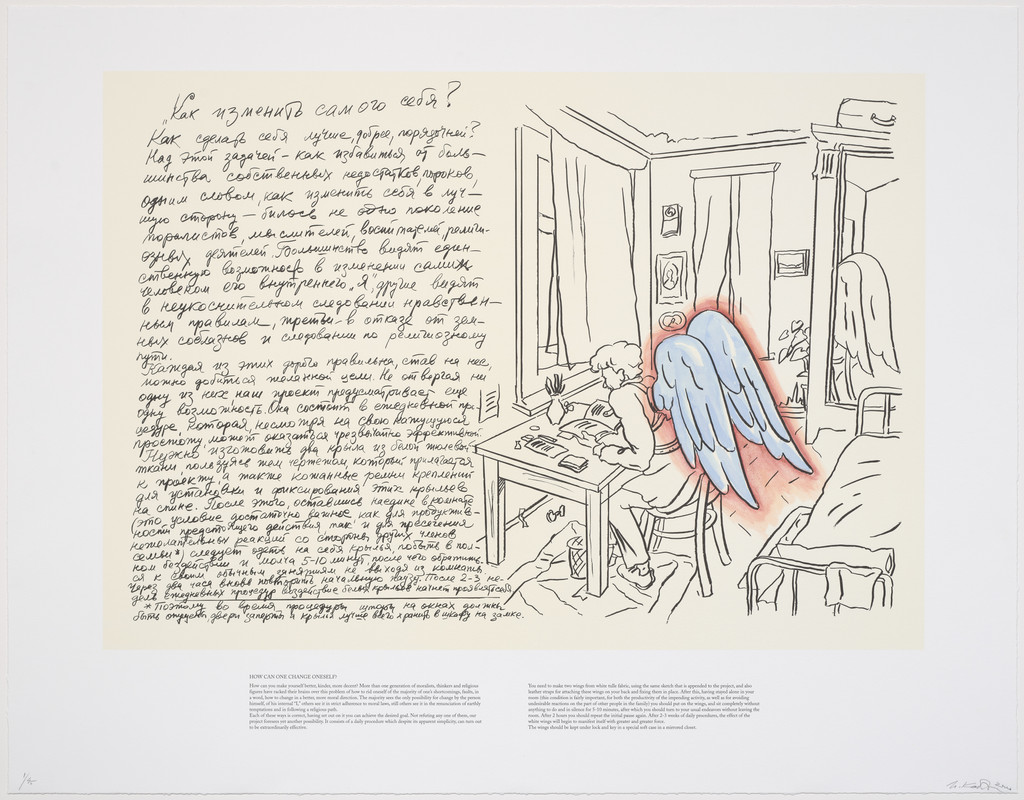 "Как изменить самого себя?
Как сделать себя лучше, добрее, порядочней?
Над этой задачей – как избавиться от боль–
шинства собственных недостатков, пороков,
одним словом, как изменить себя в луч–
шую сторону – билось не одно поколение
моралистов, мыслителей, воспитателей, религи–
озных деятелей. Большинство видят един–
ственную возможность в изменении самим
человеком его внутреннего „я", другие видят
в неукоснительном следовании нравствен–
ным правилам, третьи – в отказе от зем–
ных соблазнов и следовании по религиозному
пути.
Каждая из этих дорог правильна, став на нее,
можно добиться желанной цели. Не отвергая ни
одну из них наш проект предусматривает еще
одну возможность. Она состоит в ежедневной про–
цедуре, которая, несмотря на свою кажущуюся
простоту, может оказаться чрезвычайно эффективной.
Нужно изготовить два крыла из белой тюлевой
ткани пользуясь тем чертежом, который прилагается
к проекту, а также кожанные ремни креплений
для установки и фиксирования этих крыльев
на спине. После этого, оставшись наедине в комнате
(это условие достаточно важное как для продуктив–
ности предстоящего действия так и для пресечения
нежелательных реакций со стороны других членов
семьи*) следует одеть на себя крылья, побыть в пол–
ном бездействии и молча 5-10 минут, после чего обратить–
ся к своим обычным занятиям не выходя из комнаты.
Через два часа вновь повторить начальную паузу. После 2-3 не–
дель ежедневных процедур воздействие белых крыльев начнет проявляться
* Поэтому во время процедуры шторы на окнах должны
быть опущены, двери заперты и крылья лучше всего хранить в шкафу на замке.
HOW CAN ONE CHANGE ONESELF?
How can you make yourself better, kinder, more decent? More than one generation of moralists, thinkers and religious
figures have racked their brains over this problem of how to rid oneself of the majority of one's shortcomings, faults, in
a word, how to change in a better, more moral direction. The majority sees the only possibility for change by the person
himself, of his internal "I," others see it in strict adherence to moral laws, still others see it in the renunciation of earthly
temptations and in following a religious path.
Each of these ways is correct, having set out on it you can achieve the desired goal. Not refuting any one of them, our
project foresees yet another possibility. It consists of a daily procedure which despite its apparent simplicity, can turn out
to be extraordinarily effective.
You need to make two wings from white tulle fabric, using the same sketch that is appended to the project, and also
leather straps for attaching these wings on your back and fixing them in place. After this, having stayed alone in your
room (this condition is fairly important, for both the productivity of the impending activity, as well as for avoiding
undesirable reactions on the part of other people in the family) you should put on the wings, and sit completely without
anything to do and in silence for 5-10 minutes, after which you should turn to your usual endeavors without leaving the
room. After 2 hours you should repeat the initial pause again. After 2-3 weeks of daily procedures, the effect of the
white wings will begin to manifest itself with greater and greater force.
The wings should be kept under lock and key in a special soft case in a mirrored closet.